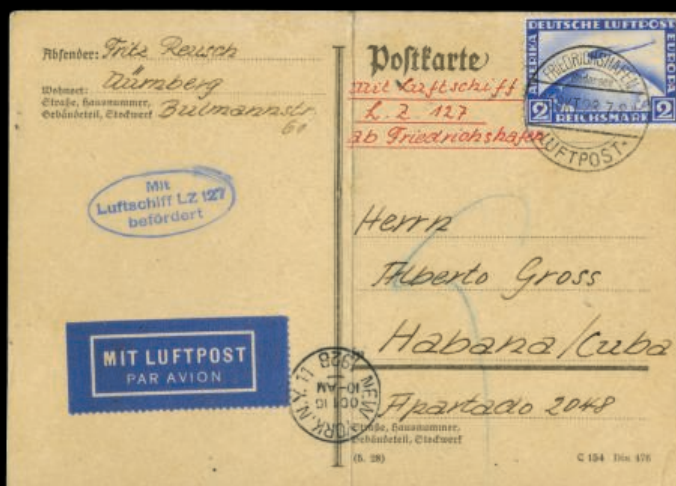 Absender: Fritz Reusch
Nürmberg
Wohnort:
Straße, Hausnummer,
Gebäudeteil, Stockwerk Bulmannstr.
Mit
Luftschiff LZ 127
befördert
MIT LUFTPOST
PAR AVION
Postkarte
mit Luftschiff
L. Z. 127
ab Friedrichshafen
DEUTSCHE LUFTPOST
AMERIKA
EUROPA
2 REICHSMARK 2
FRIEDRICHSHAFEN
LUFTPOST
Herrn
Alberto Gross
Habana/Cuba
Apartado 2048
Straße, Hausnummer,
Gebäudeteil, Stockwerk
NEW YORK, N.Y. 11
OCT 16
10-AM
1928
(5. 28)
C 154 Din 476